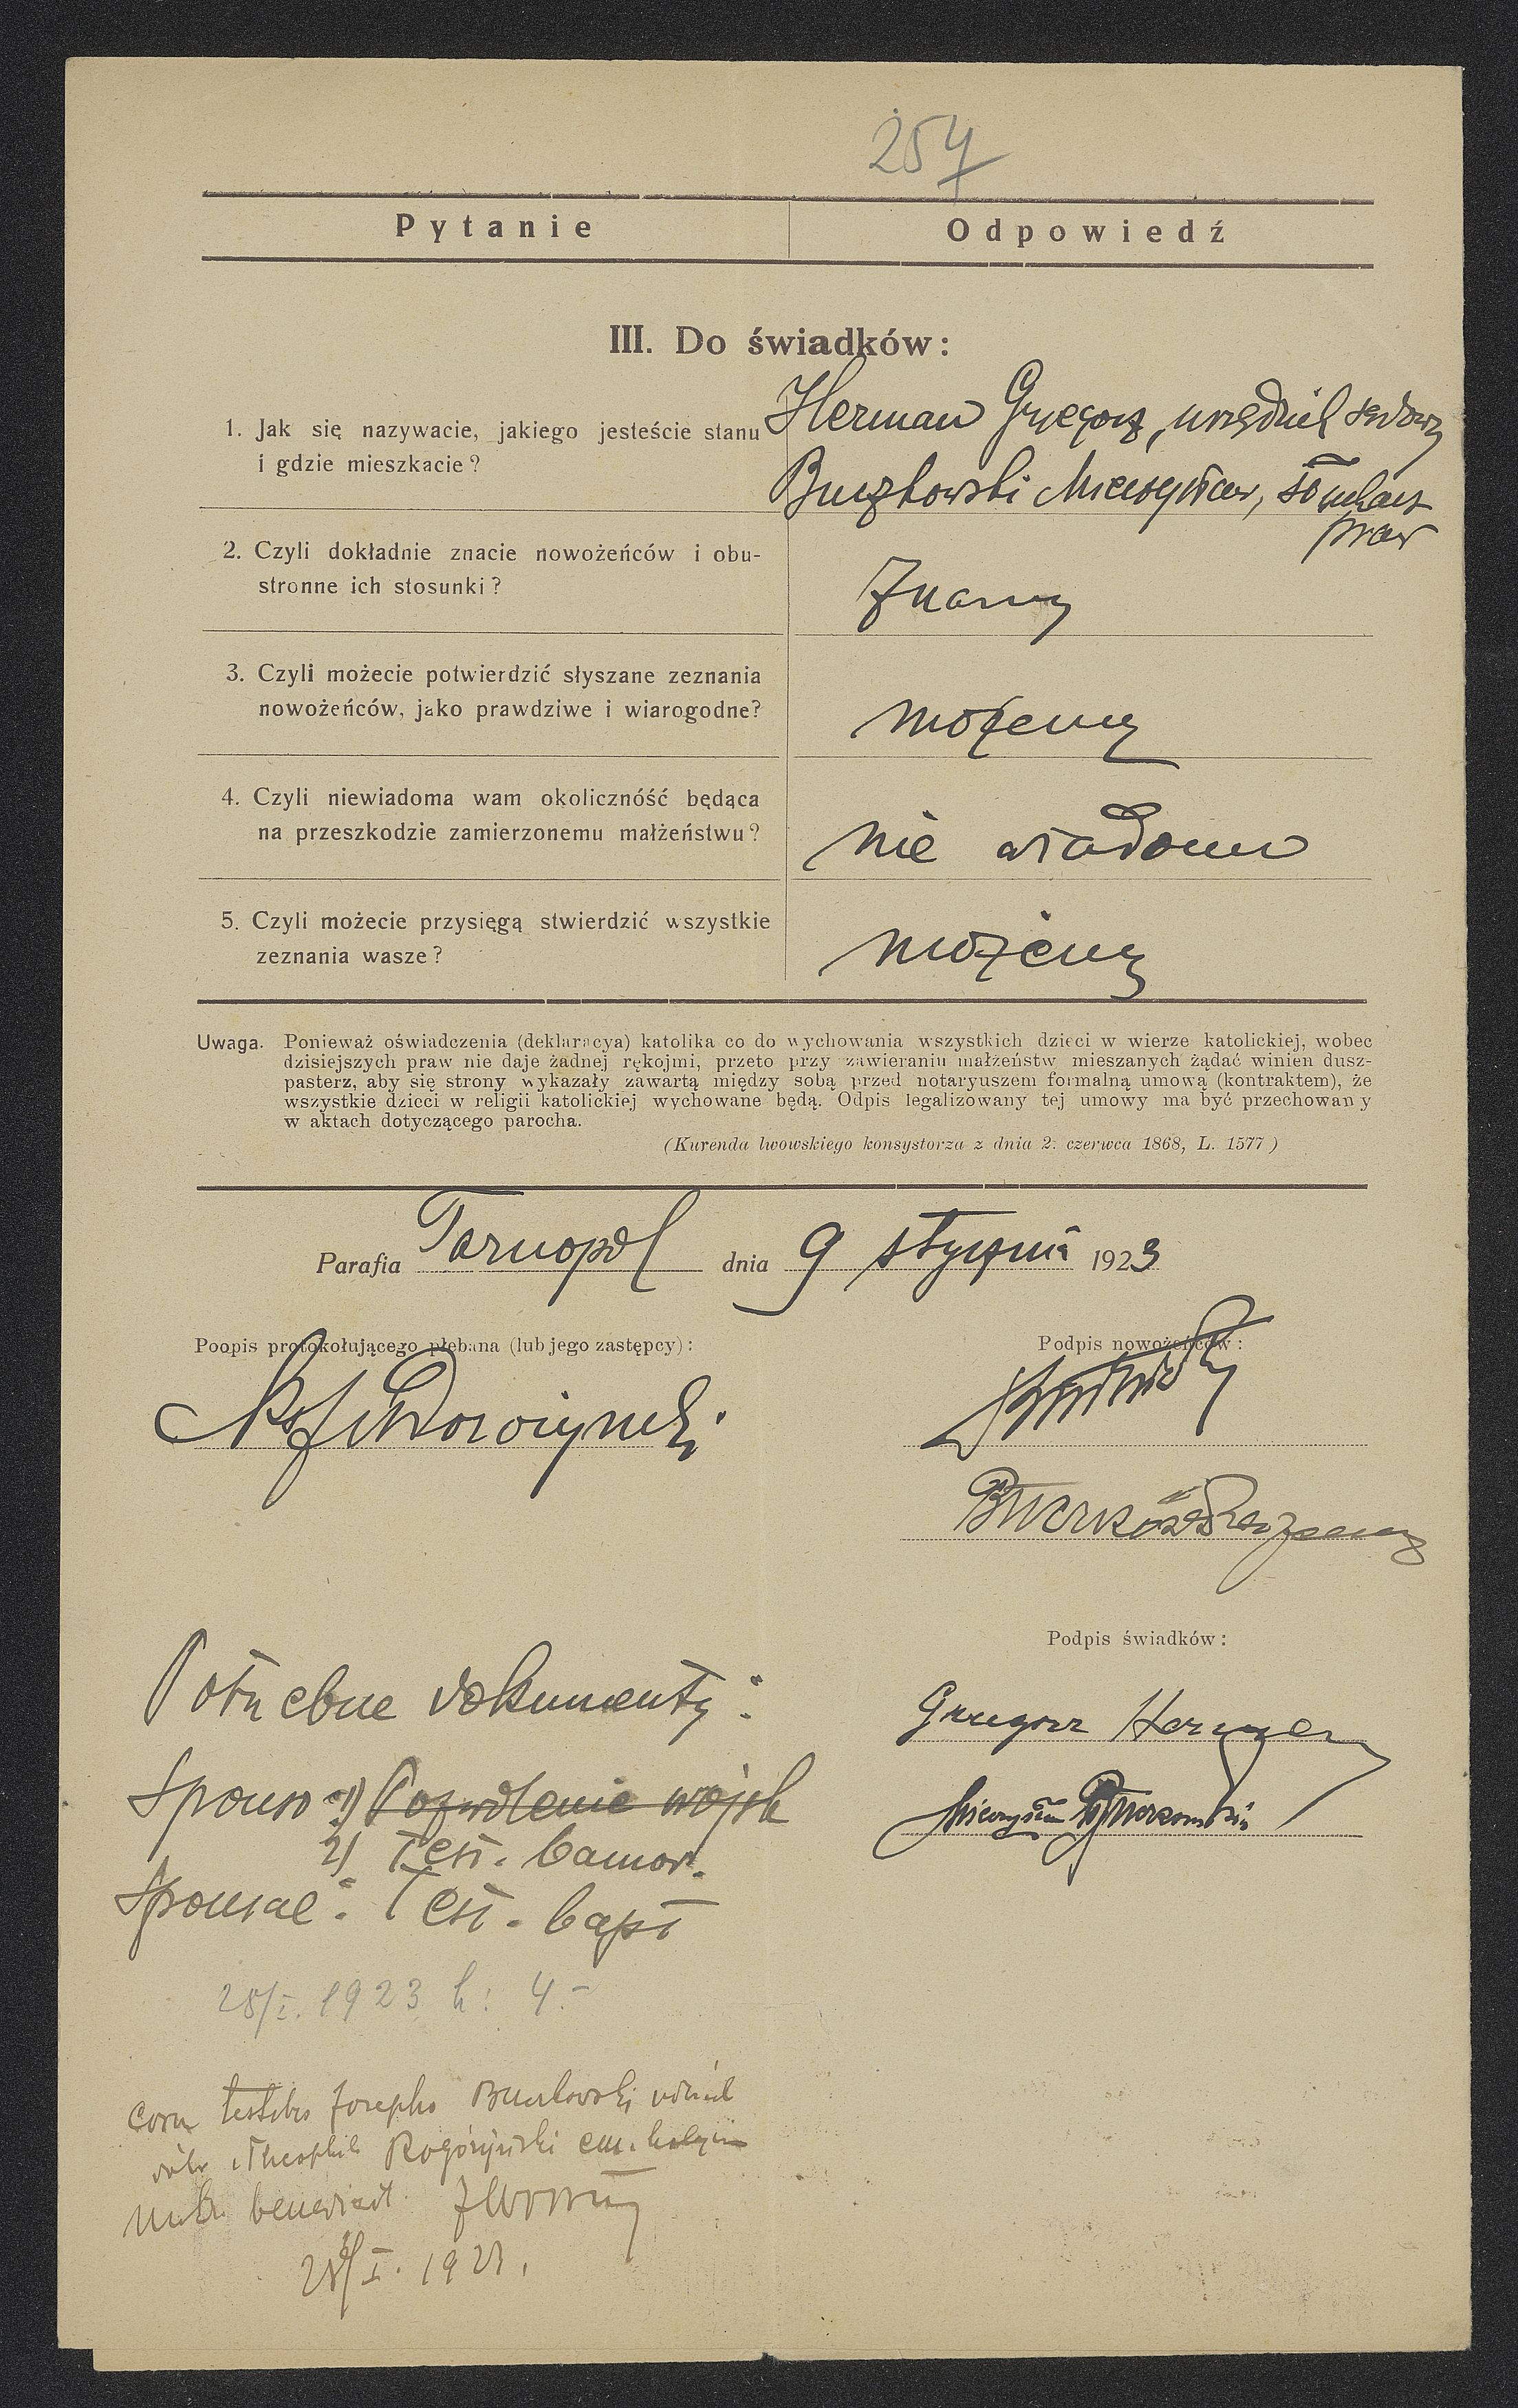 257
Pytanie
Odpowiedź
III. Do świadków:
1. Jak się nazywacie, jakiego jesteście stanu
i gdzie mieszkacie?
Herman Grzegorz, urzędnik sądowy
Buczkowski Mieczysław, słuchacz
praw
2. Czyli dokładnie znacie nowożeńców i obu-
stronne ich stosunki?
Znamy
3. Czyli możecie potwierdzić słyszane zeznania
nowożeńców, jako prawdziwe i wiarogodne?
możemy
4. Czyli niewiadoma wam okoliczność będąca
na przeszkodzie zamierzonemu małżeństwu?
nie wiadomo
5. Czyli możecie przysięgą stwierdzić wszystkie
zeznania wasze?
możemy
Uwaga. Ponieważ oświadczenia (deklaracya) katolika co do wychowania wszystkich dzieci w wierze katolickiej, wobec
dzisiejszych praw nie daje żadnej rękojmi, przeto przy zawieraniu małżeństw mieszanych żądać winien dusz-
pasterz, aby się strony wykazały zawartą między sobą przed notaryuszem formalną umową (kontraktem), że
wszystkie dzieci w religii katolickiej wychowane będą. Odpis legalizowany tej umowy ma być przechowany
w aktach dotyczącego parocha.
(Kurenda lwowskiego konsystorza z dnia 2. czerwca 1868, L. 1577)
Parafia Tarnopol dnia 9 stycznia 1923
Poopis protokołującego plebana (lub jego zastępcy):
Podpis nowożeńców:
Podpis świadków:
Potrzebne dokumenty:
Grzegorz Herman
Sponso: 1) Pozwolenie wojsk
Mieczysław Buczkowski
2) Test. bannor.
Sponsae: Test. bapt
28/I. 1923 h: 4.-
Coram testibus Josepho Buczkowski
Rogórzyński em.
benedixit
28/I. 1923.